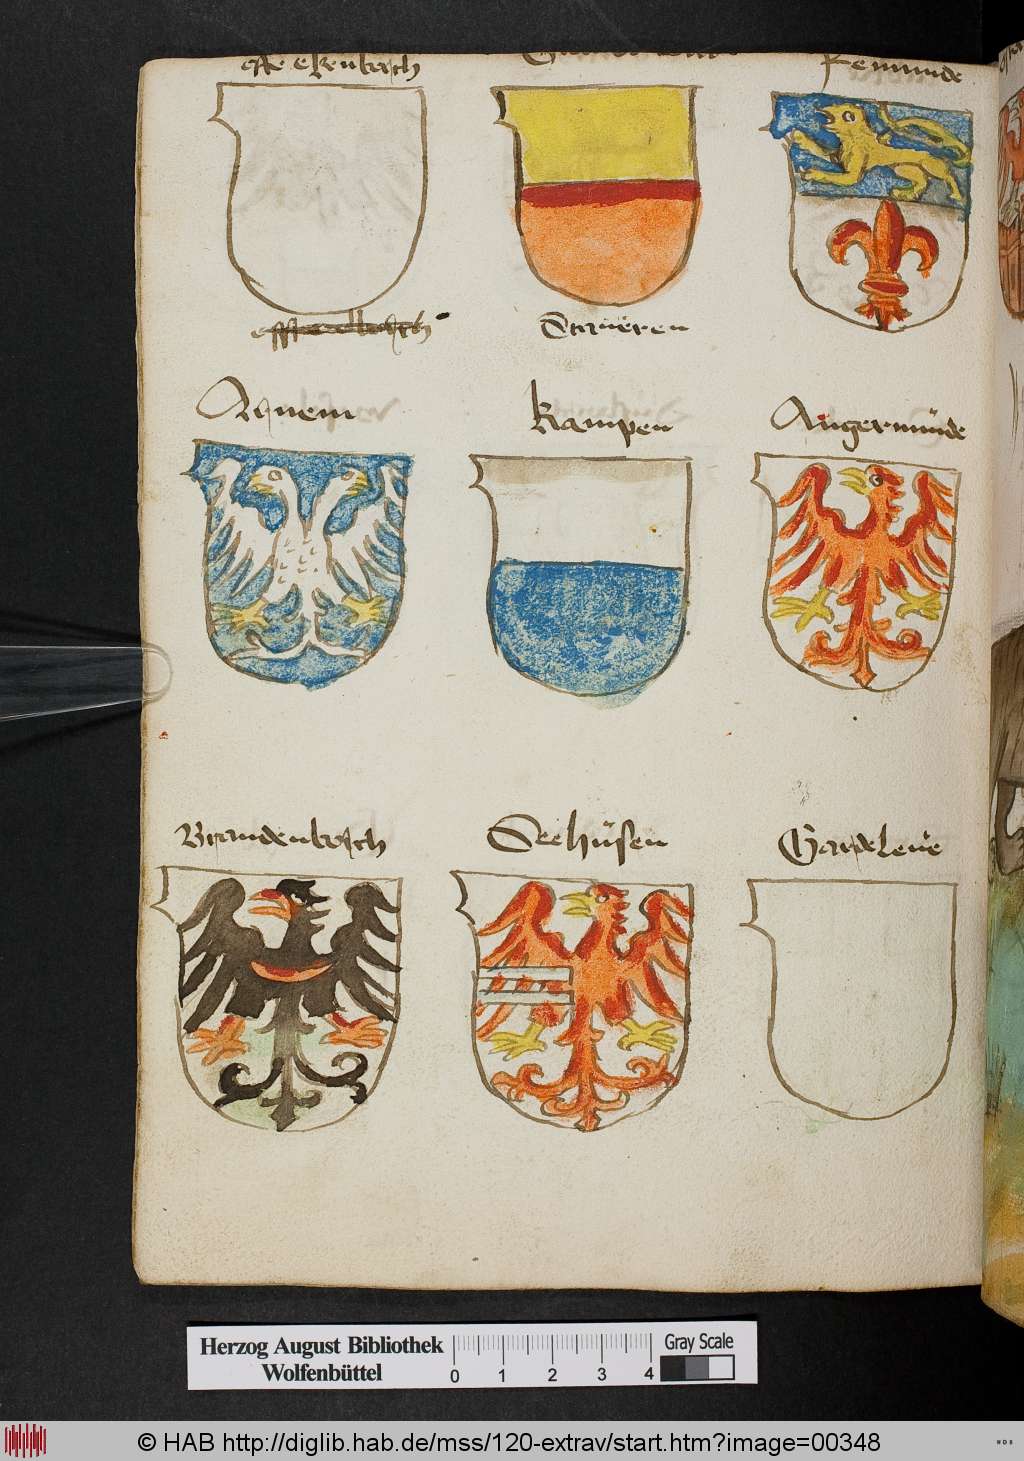 Remunde
Staueren
Arnem
Kampen
Angermünde
Brandenborch
Seehüsen
Gardeleue
Herzog August Bibliothek
Wolfenbüttel
0 1 2 3 4
Gray Scale
© HAB http://diglib.hab.de/mss/120-extrav/start.htm?image=00348